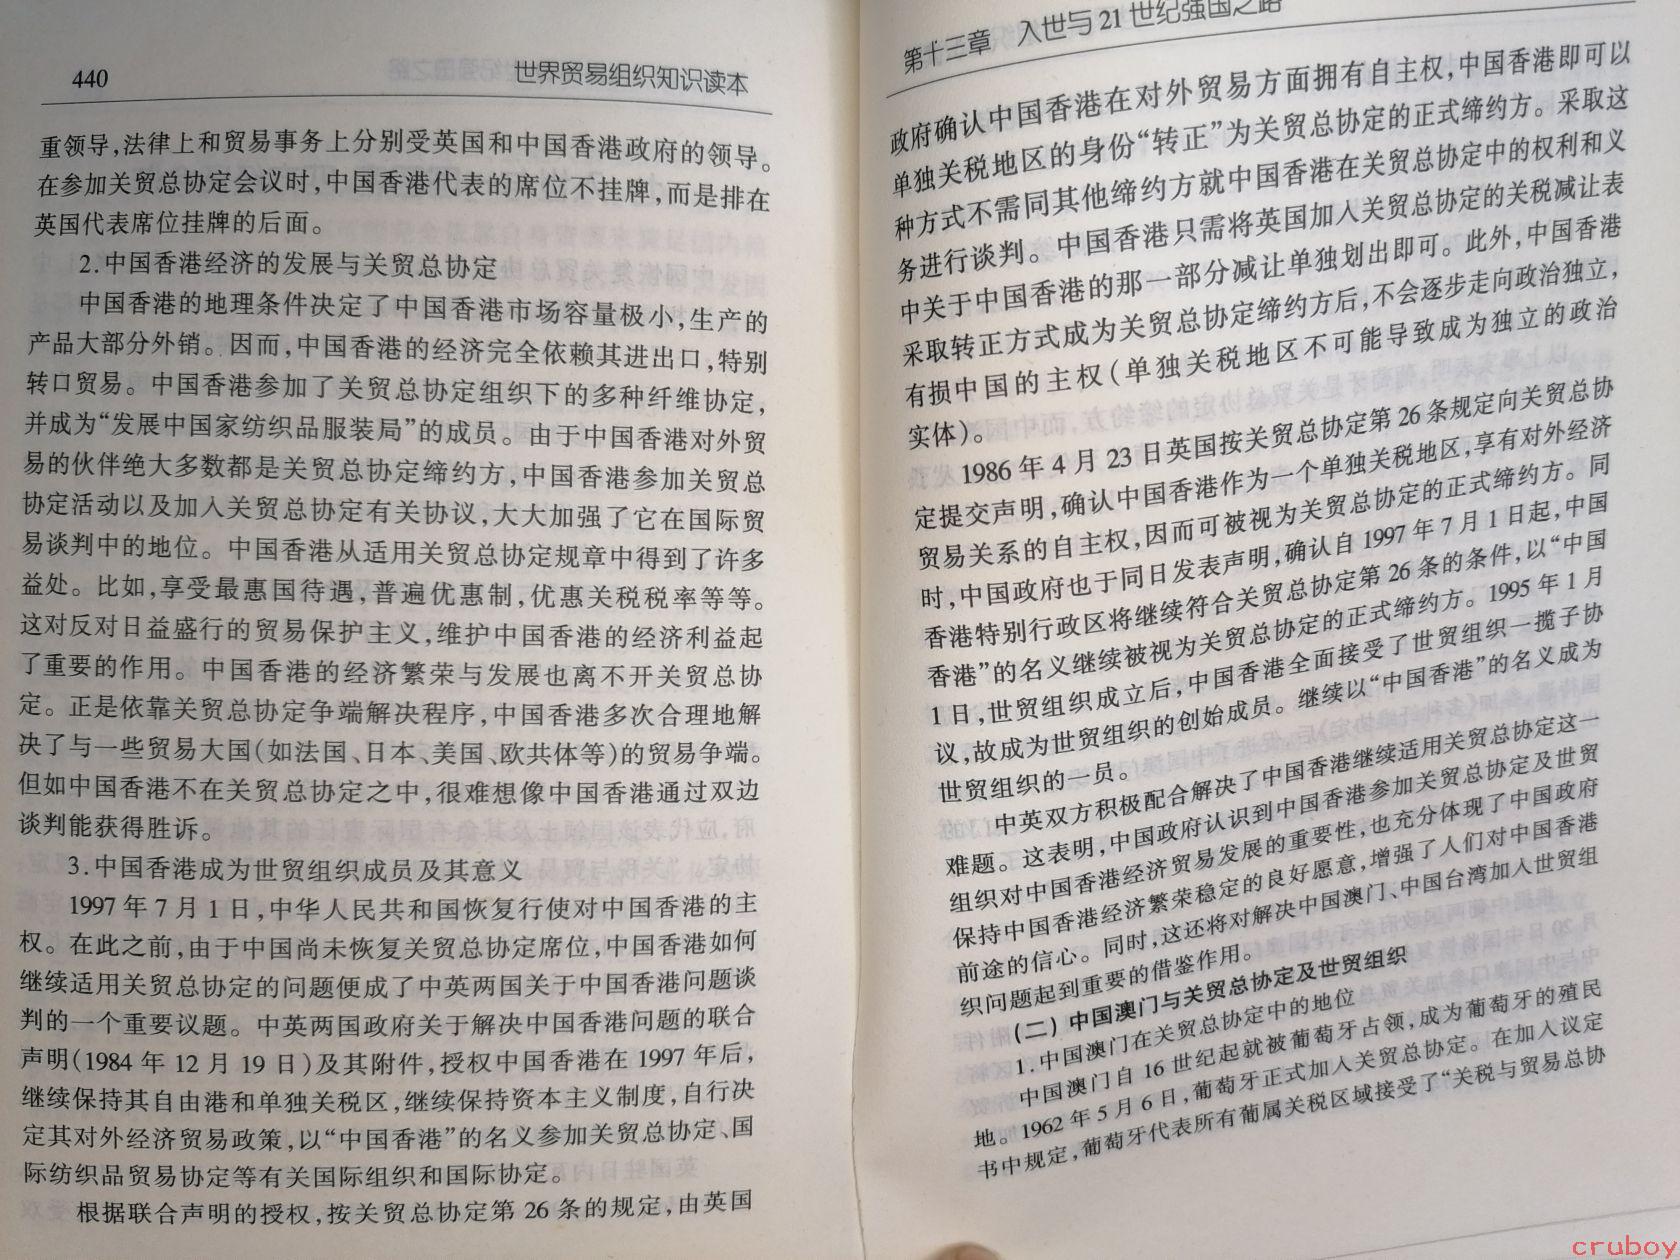 440
世界贸易组织知识读本
重领导,法律上和贸易事务上分别受英国和中国香港政府的领导。
在参加关贸总协定会议时,中国香港代表的席位不挂牌,而是排在
英国代表席位挂牌的后面。
2.中国香港经济的发展与关贸总协定
中国香港的地理条件决定了中国香港市场容量极小,生产的
产品大部分外销。因而,中国香港的经济完全依赖其进出口,特别
转口贸易。中国香港参加了关贸总协定组织下的多种纤维协定,
并成为“发展中国家纺织品服装局”的成员。由于中国香港对外贸
易的伙伴绝大多数都是关贸总协定缔约方,中国香港参加关贸总
协定活动以及加入关贸总协定有关协议,大大加强了它在国际贸
易谈判中的地位。中国香港从适用关贸总协定规章中得到了许多
益处。比如,享受最惠国待遇,普遍优惠制,优惠关税税率等等。
这对反对日益盛行的贸易保护主义,维护中国香港的经济利益起
了重要的作用。中国香港的经济繁荣与发展也离不开关贸总协
定。正是依靠关贸总协定争端解决程序,中国香港多次合理地解
决了与一些贸易大国(如法国、日本、美国、欧共体等)的贸易争端。
但如中国香港不在关贸总协定之中,很难想像中国香港通过双边
谈判能获得胜诉。
3.中国香港成为世贸组织成员及其意义
1997年7月1日,中华人民共和国恢复行使对中国香港的主
权。在此之前,由于中国尚未恢复关贸总协定席位,中国香港如何
继续适用关贸总协定的问题便成了中英两国关于中国香港问题谈
判的一个重要议题。中英两国政府关于解决中国香港问题的联合
声明(1984年12月19日)及其附件,授权中国香港在1997年后,
继续保持其自由港和单独关税区,继续保持资本主义制度,自行决
定其对外经济贸易政策,以“中国香港”的名义参加关贸总协定、国
际纺织品贸易协定等有关国际组织和国际协定。
根据联合声明的授权,按关贸总协定第26条的规定,由英国
第十三章 入世与21世纪强国之路
政府确认中国香港在对外贸易方面拥有自主权,中国香港即可以
单独关税地区的身份“转正”为关贸总协定的正式缔约方。采取这
种方式不需同其他缔约方就中国香港在关贸总协定中的权利和义
务进行谈判。中国香港只需将英国加入关贸总协定的关税减让表
中关于中国香港的那一部分减让单独划出即可。此外,中国香港
采取转正方式成为关贸总协定缔约方后,不会逐步走向政治独立,
有损中国的主权(单独关税地区不可能导致成为独立的政治
实体)。
1986年4月23日英国按关贸总协定第26条规定向关贸总协
定提交声明,确认中国香港作为一个单独关税地区,享有对外经济
贸易关系的自主权,因而可被视为关贸总协定的正式缔约方。同
时,中国政府也于同日发表声明,确认自1997年7月1日起,中国
香港特别行政区将继续符合关贸总协定第26条的条件,以“中国
香港”的名义继续被视为关贸总协定的正式缔约方。1995年1月
1日,世贸组织成立后,中国香港全面接受了世贸组织一揽子协
议,故成为世贸组织的创始成员。继续以“中国香港”的名义成为
世贸组织的一员。
中英双方积极配合解决了中国香港继续适用关贸总协定这一
难题。这表明,中国政府认识到中国香港参加关贸总协定及世贸
组织对中国香港经济贸易发展的重要性,也充分体现了中国政府
保持中国香港经济繁荣稳定的良好愿意,增强了人们对中国香港
前途的信心。同时,这还将对解决中国澳门、中国台湾加入世贸组
织问题起到重要的借鉴作用。
(二)中国澳门与关贸总协定及世贸组织
1.中国澳门在关贸总协定中的地位
中国澳门自16世纪起就被葡萄牙占领,成为葡萄牙的殖民
地。1962年5月6日,葡萄牙正式加入关贸总协定。在加入议定
书中规定,葡萄牙代表所有葡属关税区域接受了“关税与贸易总协
cruboy